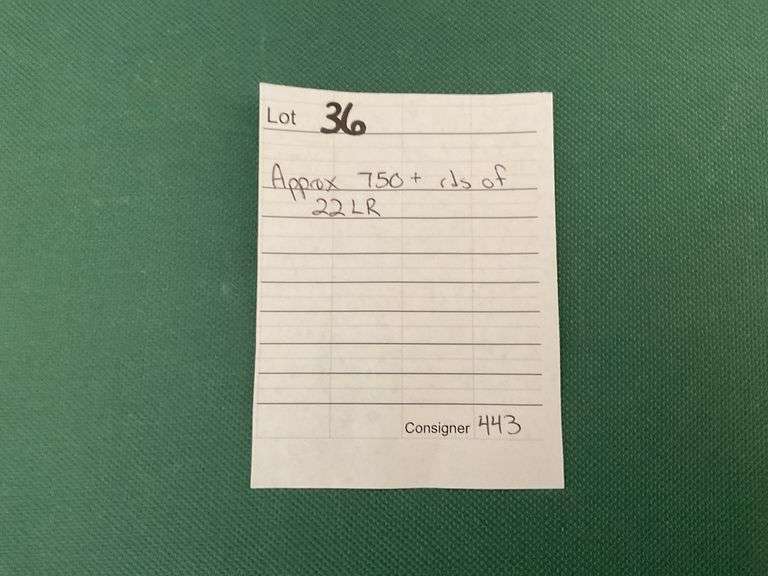 Lot 36
Approx 750+ rds of
22LR
Consigner 443